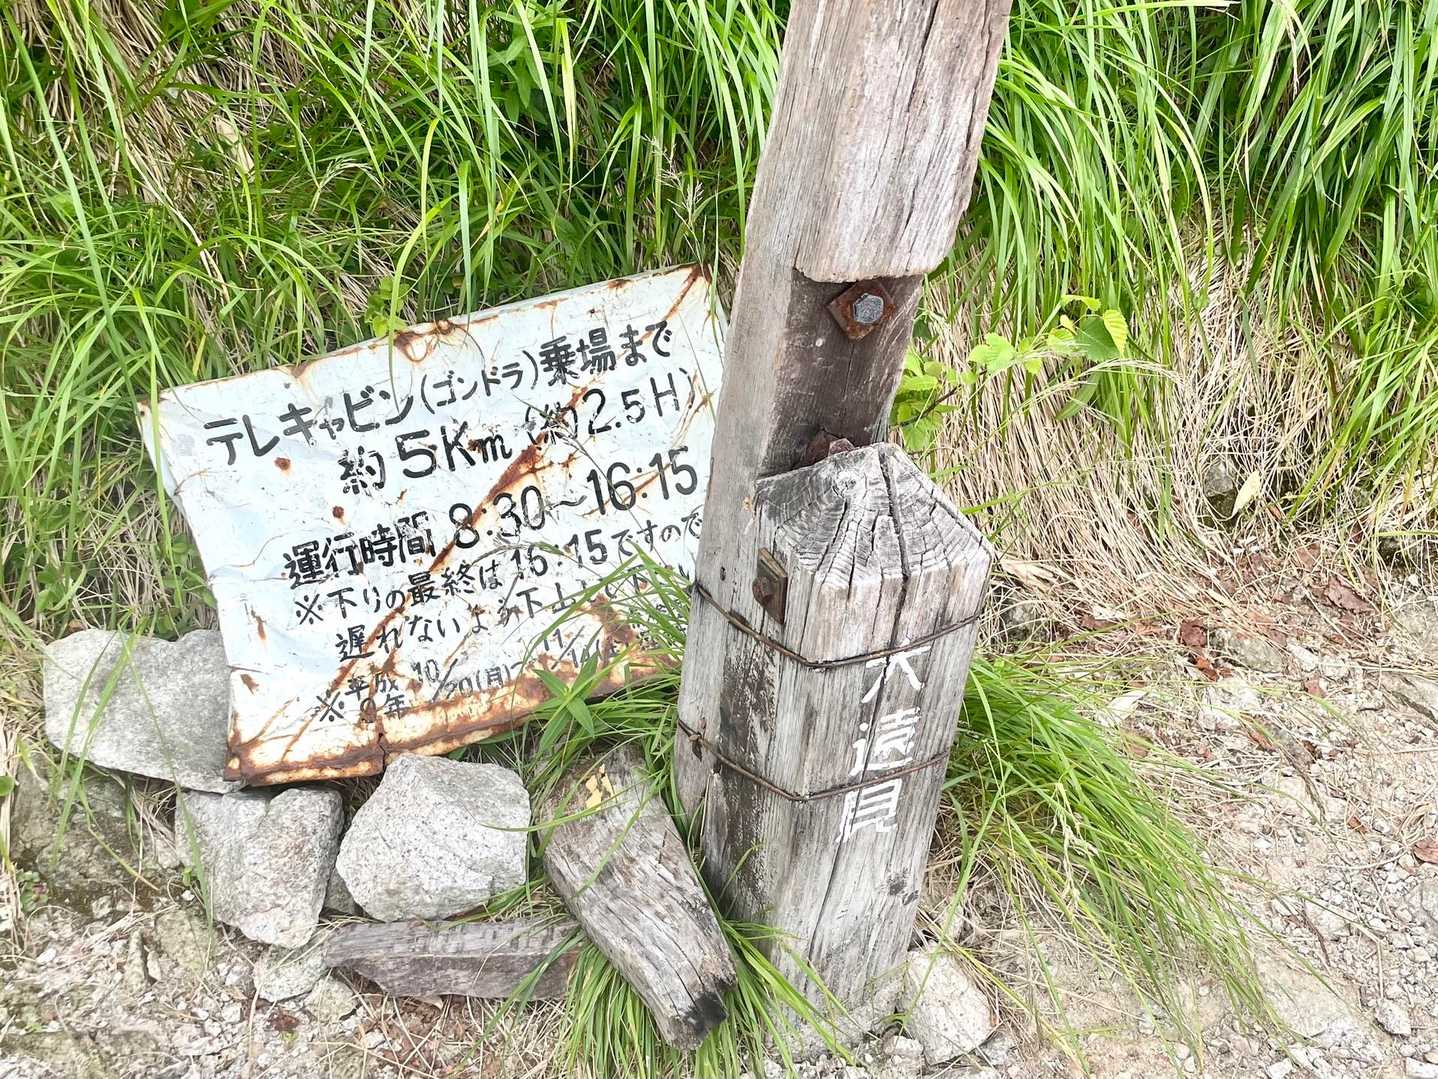 テレキャビン(ゴンドラ)乗場まで
約5Km (約2.5H)
運行時間 8:30〜16:15
※下りの最終は16:15ですので
遅れないよう下山
※平成 の年 10/20(月)〜11/
大遠見